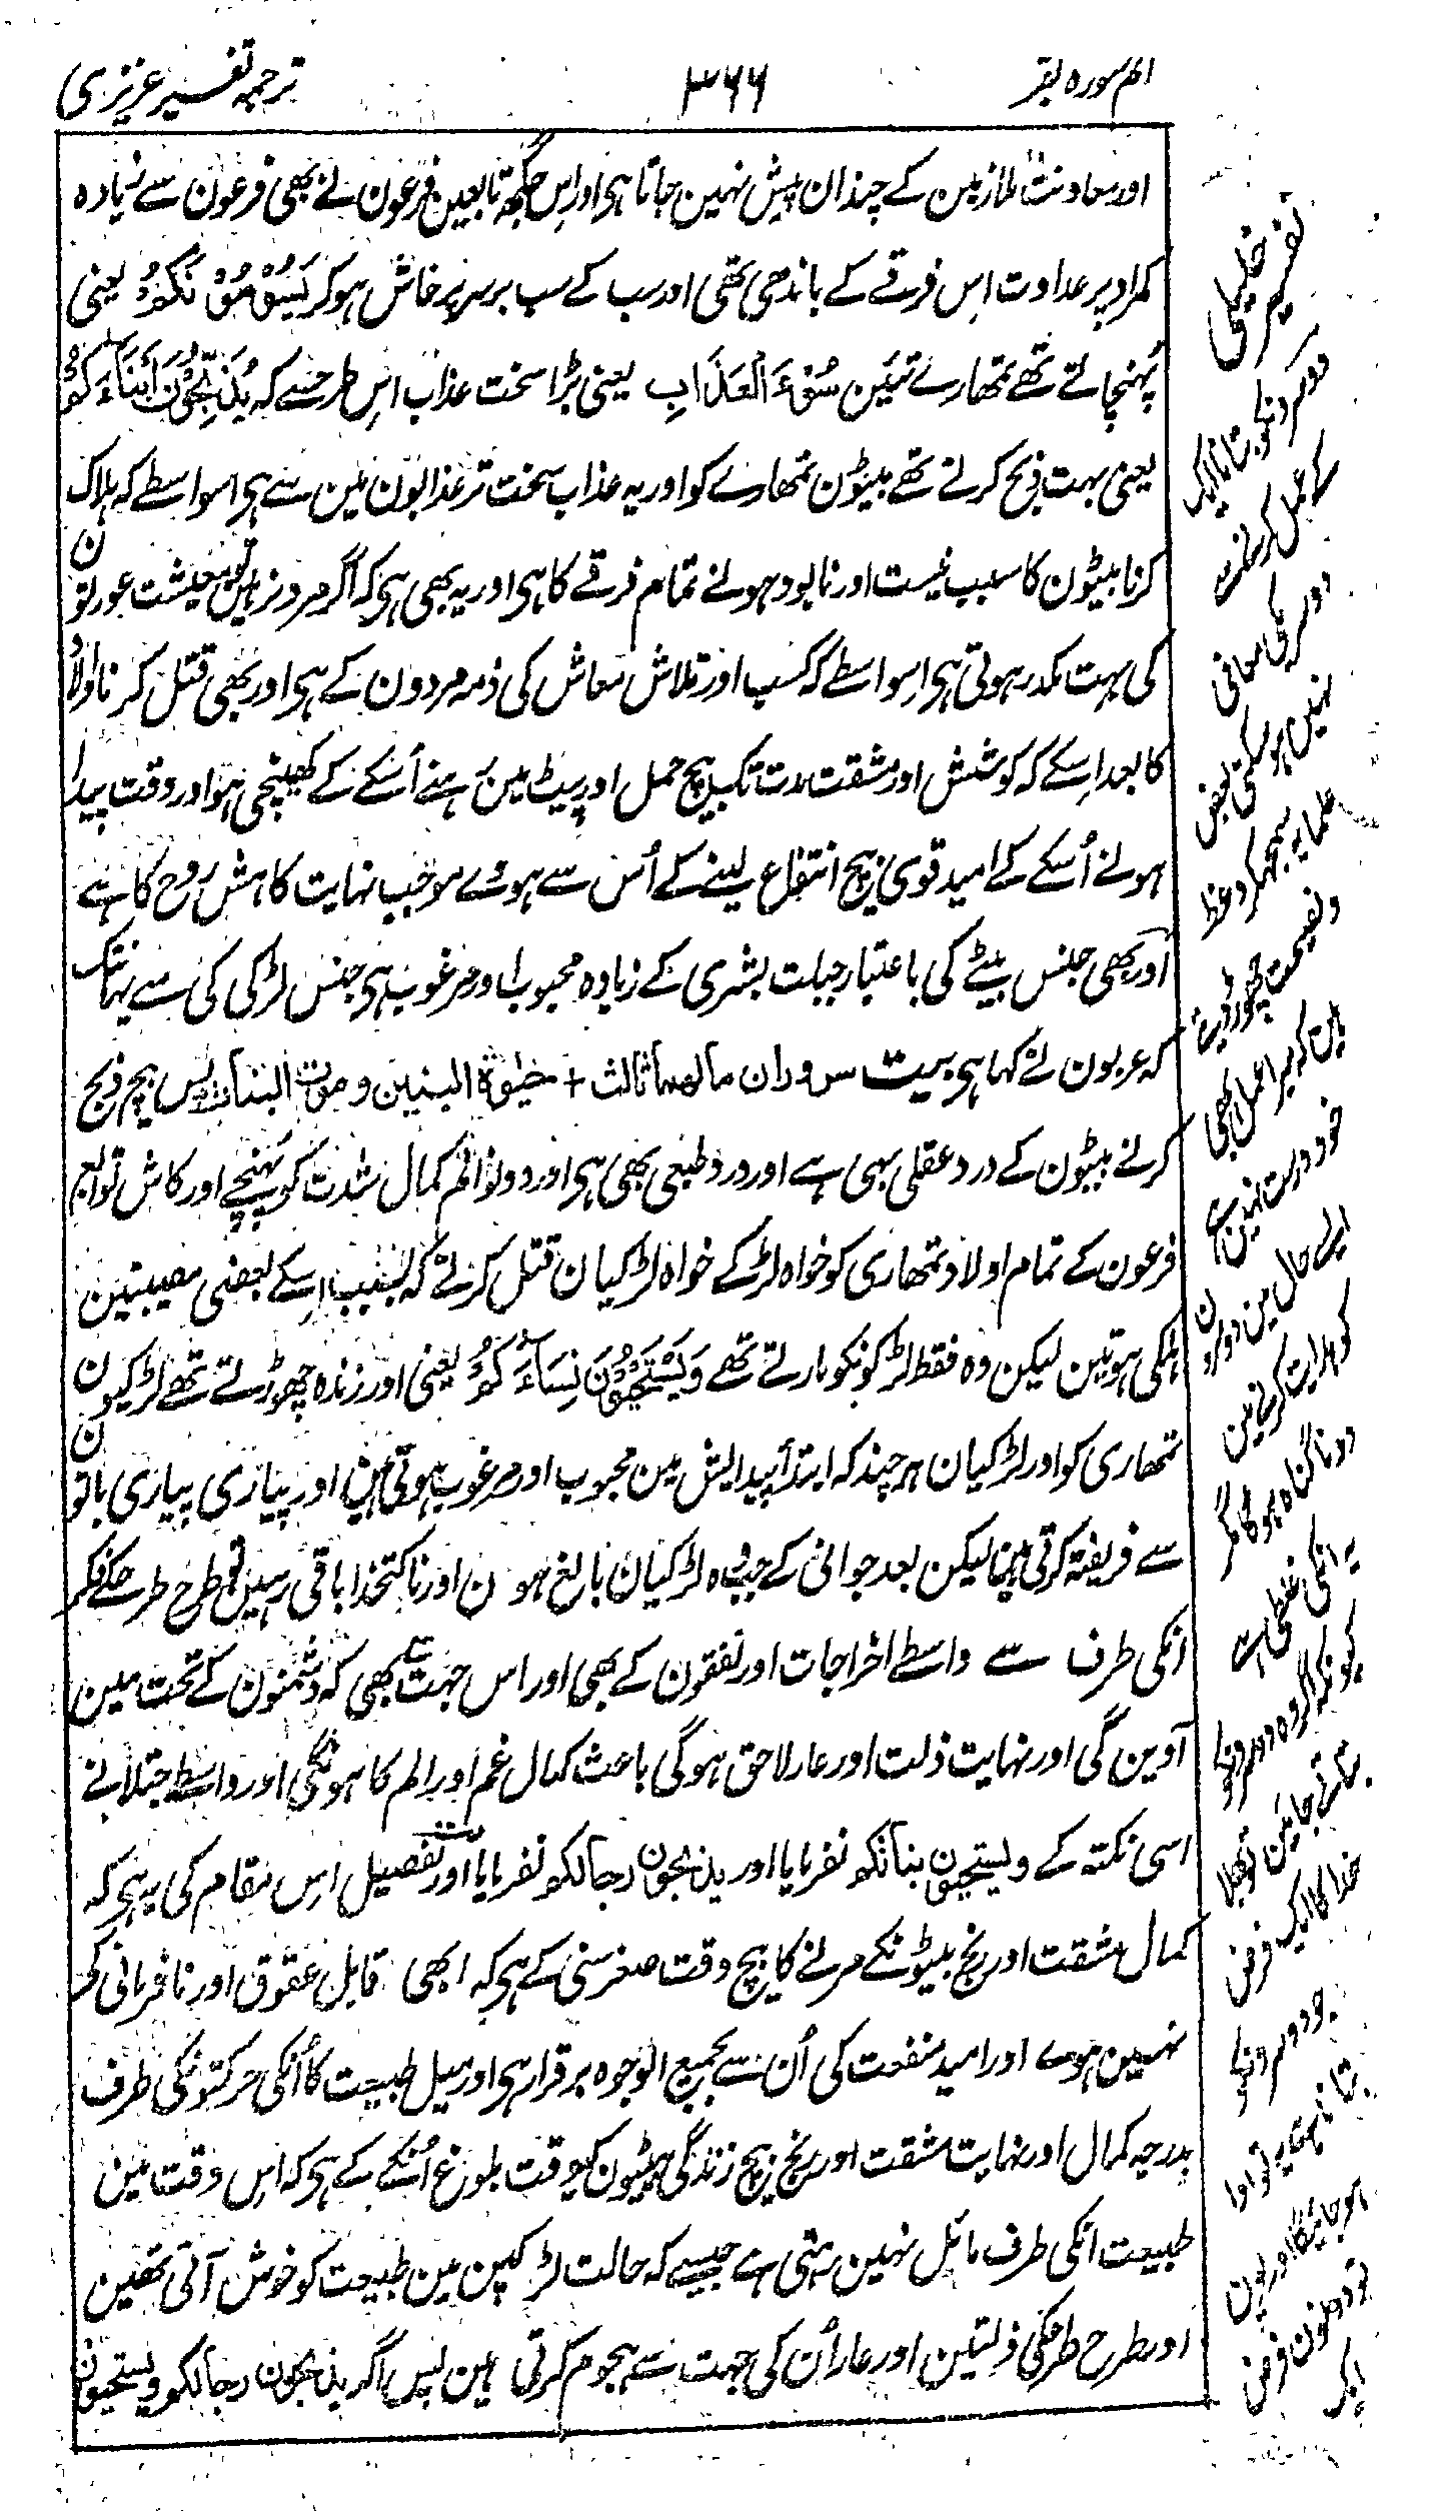 الم سورہ بقر
۳۶۶
ترجمہ تفسیر عزیزی
اور معاونت ملازمین کے چندان پیش نہین جاتا ہی اور اس جگہہ تابعین فرعون نے بھی فرعون سے زیادہ
کمر اوپر عداوت اِس فرقے کے باندھی تھی اور سب کے سب برسر پرخاش ہوکر یَسُوْمُوْنَکُمْ یعنی
پُہنچاتے تھے تمھارے تئین سُوْءَ الْعَذَابِ یعنی بڑا سخت عذاب اس طرحسے کہ یُذَبِّحُوْنَ اَبْنَاءَ کُمْ
یعنی بہت ذبح کرتے تھے بیٹون تمھارے کو اور یہ عذاب سخت تر عذابون مین سے ہی اسواسطے کہ ہلاک
کرنا بیٹون کا سبب نیست اور نابود ہونے تمام فرقے کا ہی اور یہ بھی ہی کہ اگر مرد نرہین تو معیشت عورتون
کی بہت مکدر ہوتی ہی اسواسطے کہ کسب اور تلاش معاش کی ذمہ مردون کے ہی اور بھی قتل کرنا اولاد
کا بعد اِسکے کہ کوشش اور مشقت مدت تک بیچ حمل اور پیٹ مین رہنے اُسکے کے کھینچی ہو اور وقت پیدا
ہونے اُسکے کے امید قوی بیچ انتفاع لینے کے اُس سے ہووے موجب نہایت کاہش روح کا ہے
اور بھی جنس بیٹے کی باعتبار جبلت بشری کے زیادہ محبوب اور مرغوب ہی جنس لڑکی کی سے یہانتک
کہ عربون نے کہا ہی بیت سروران مالھما ثالث + حیٰوۃ البنین و موت البنات پس بیچ ذبح
کرنے بیٹون کے درد عقلی بہی ہے اور درد طبعی بھی ہی اور دونو الم کمال شدت کو پہنچے اور کاش توابع
فرعون کے تمام اولاد تمھاری کو خواہ لڑکے خواہ لڑکیان قتل کرتے کہ بسبب اِسکے بعضی مصیبتین
ہلکی ہوتین لیکن وہ فقط لڑکونکو مارتے تھے وَیَسْتَحْیُوْنَ نِسَاءَ کُمْ یعنی اور زندہ چھوڑتے تھے لڑکیون
تمھاری کو اور لڑکیان ہرچند کہ ابتدأ پیدایش مین محبوب اور مرغوب ہوتی ہین اور پیاری پیاری باتون
سے فریفتہ کرتی ہین لیکن بعد جوانی کے جب وہ لڑکیان بالغ ہون اور ناکتخدا باقی رہین تو طرح طرحکے فکر
انکی طرف سے واسطے اخراجات اور نفقون کے بھی اور اس جہت سے بھی کہ دشمنون کے تحت مین
آوین گی اور نہایت ذلت اور عار لاحق ہوگی باعث کمال غم اور الم کا ہونگی اور واسطے جتلانے
اسی نکتہ کے ویستحیون بناتکو نفرمایا اور یذبحون رجالکو نفرمایا اور تفصیل اِس مقام کی یہ ہی کہ
کمال مشقت اور رنج بیٹونکے مرنے کا بیچ وقت صغر سنی کے ہی کہ ابھی قابل عقوق اور نافرمانی کے
نہین ہوے اور امید منفعت کی اُن سے بجمیع الوجوہ برقرار ہی اور میل طبیعت کا اُنکی حرکتونکی طرف
بدرجہ کمال اور نہایت مشقت اور رنج بیچ زندگی بیٹیون کے وقت بلوغ اُنکے کے ہی کہ اِس وقت مین
طبیعت انکی طرف مائل نہین رہتی ہے جیسے کہ حالت لڑکپن مین طبیعت کو خوش آتی تھین
اور طرح طرحکی ذلتین اور عار اُن کی جہت سے ہجوم کرتی ہین پس اگر یذبحون رجالکو ویستحیون
تفسیر خلیلی
دوسرونکو بتانا ایک
ہے عمل کرنا
دوسرے کی معافی
نہین ہوسکتی بعض
علما یہ سمجھکر وعظ
و نصیحت چھوڑ دیتے
ہین کہ میرا عمل ابھی
خود درست نہین ہے
ایسے حال مین دوسرون
کو ہدایت کرنے مین
دونا گناہ ہوگا مگر
یہ انکی غلطی ہے
کیونکہ اگر وہ دوسرونکو
بتاتے جائین تو بھلا
خدا کا ایک فرض
جو دوسرونکو
بتانا تھا وہ تو ادا
ہو جائیگا اور یون
تو دونون فرض